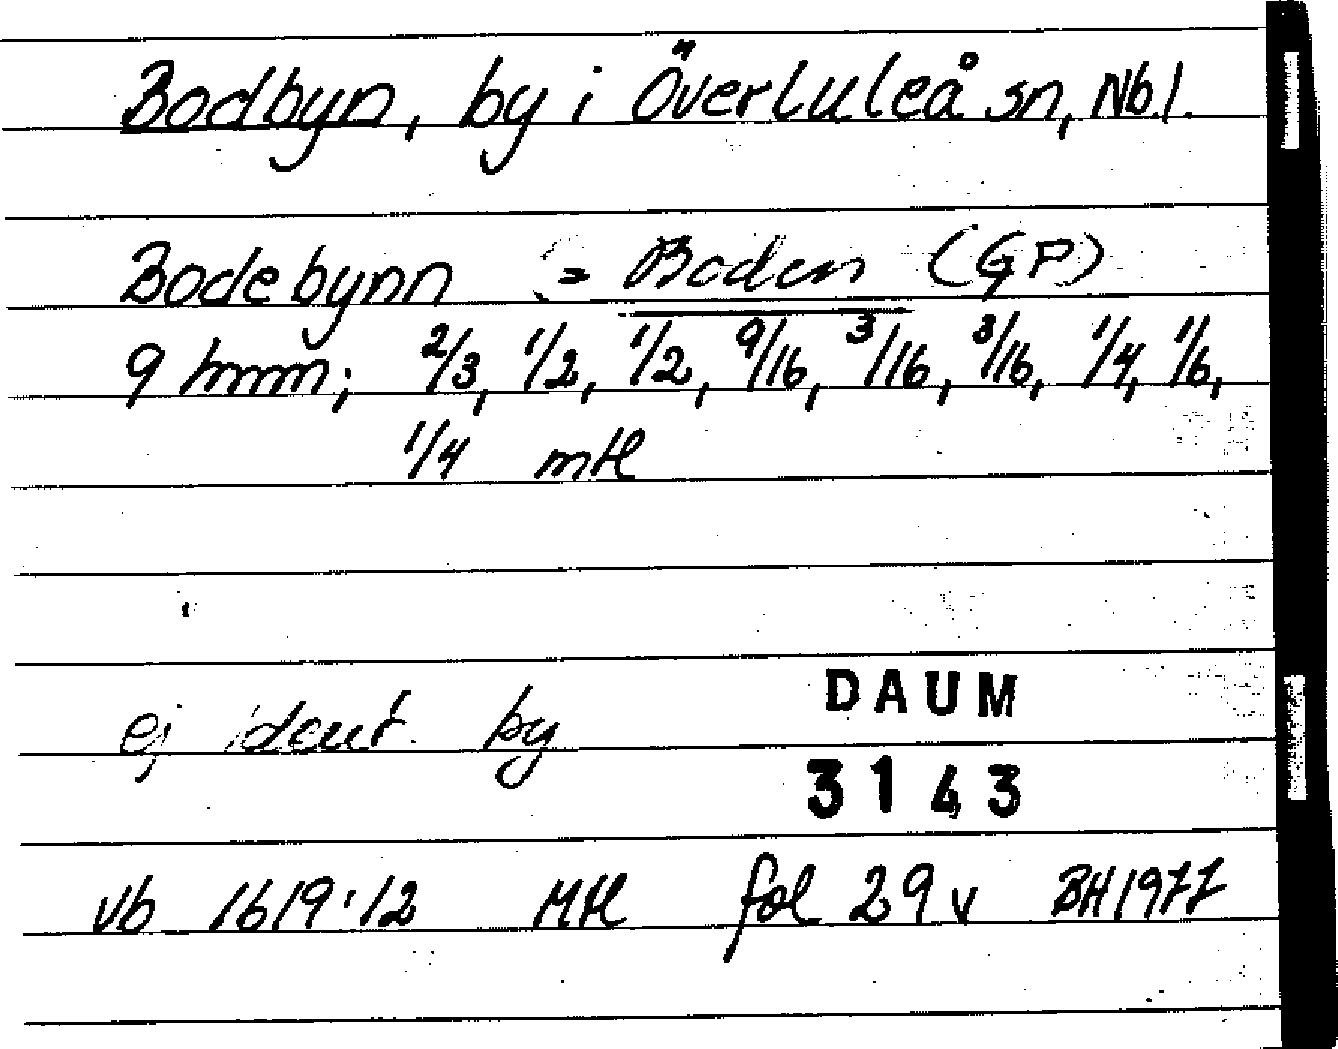 Bodbyn, by i Överluleå sn, Nb.l.
Bodebynn = Boden (GP)
9 hmn; 2/3, 1/2, 1/2, 9/16, 3/16, 3/16, 1/4, 1/6,
1/4 mtl
ej ident. by
DAUM
3143
vb 1619:12 Mtl fol 29 v BH1977